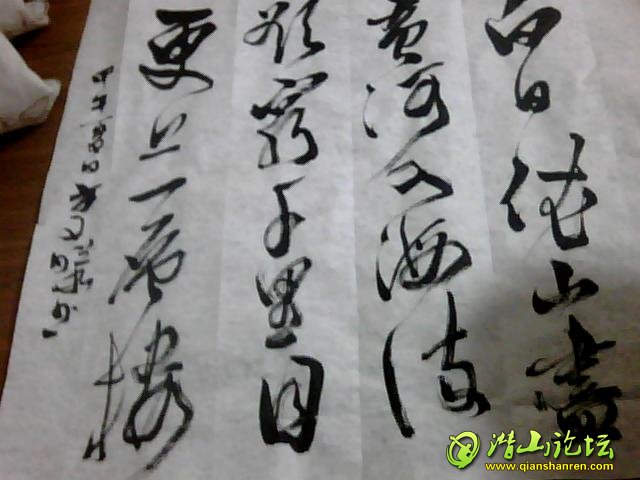 白日依山尽
黄河入海流
欲窮千里目
更上一層樓
潜山论坛
www.qianshanren.com